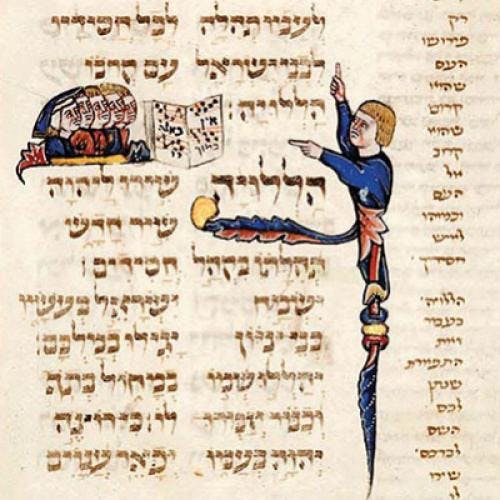 לְעַמּוֹ תְּהִלָּה לְכָל חֲסִידָיו
לִבְנֵי יִשְׂרָאֵל עַם קְרֹבוֹ
הַלְלוּיָהּ׃
הַלְלוּיָהּ שִׁירוּ לַיהוָה
שִׁיר חָדָשׁ
תְּהִלָּתוֹ בִּקְהַל חֲסִידִים׃
יִשְׂמַח יִשְׂרָאֵל בְּעֹשָׂיו
בְּנֵי צִיּוֹן יָגִילוּ בְמַלְכָּם׃
יְהַלְלוּ שְׁמוֹ בְמָחוֹל בְּתֹף
וְכִנּוֹר יְזַמְּרוּ לוֹ׃ כִּי רוֹצֶה
יְהוָה בְּעַמּוֹ יְפָאֵר עֲנָוִים
רק
פירושו
העם
שהוא
קדוש
שהוא
קרוב
אל
העם
וכמוהו
לאיש
חסדך
הללויה
בעבור
היות
שנתן
לכם
השם